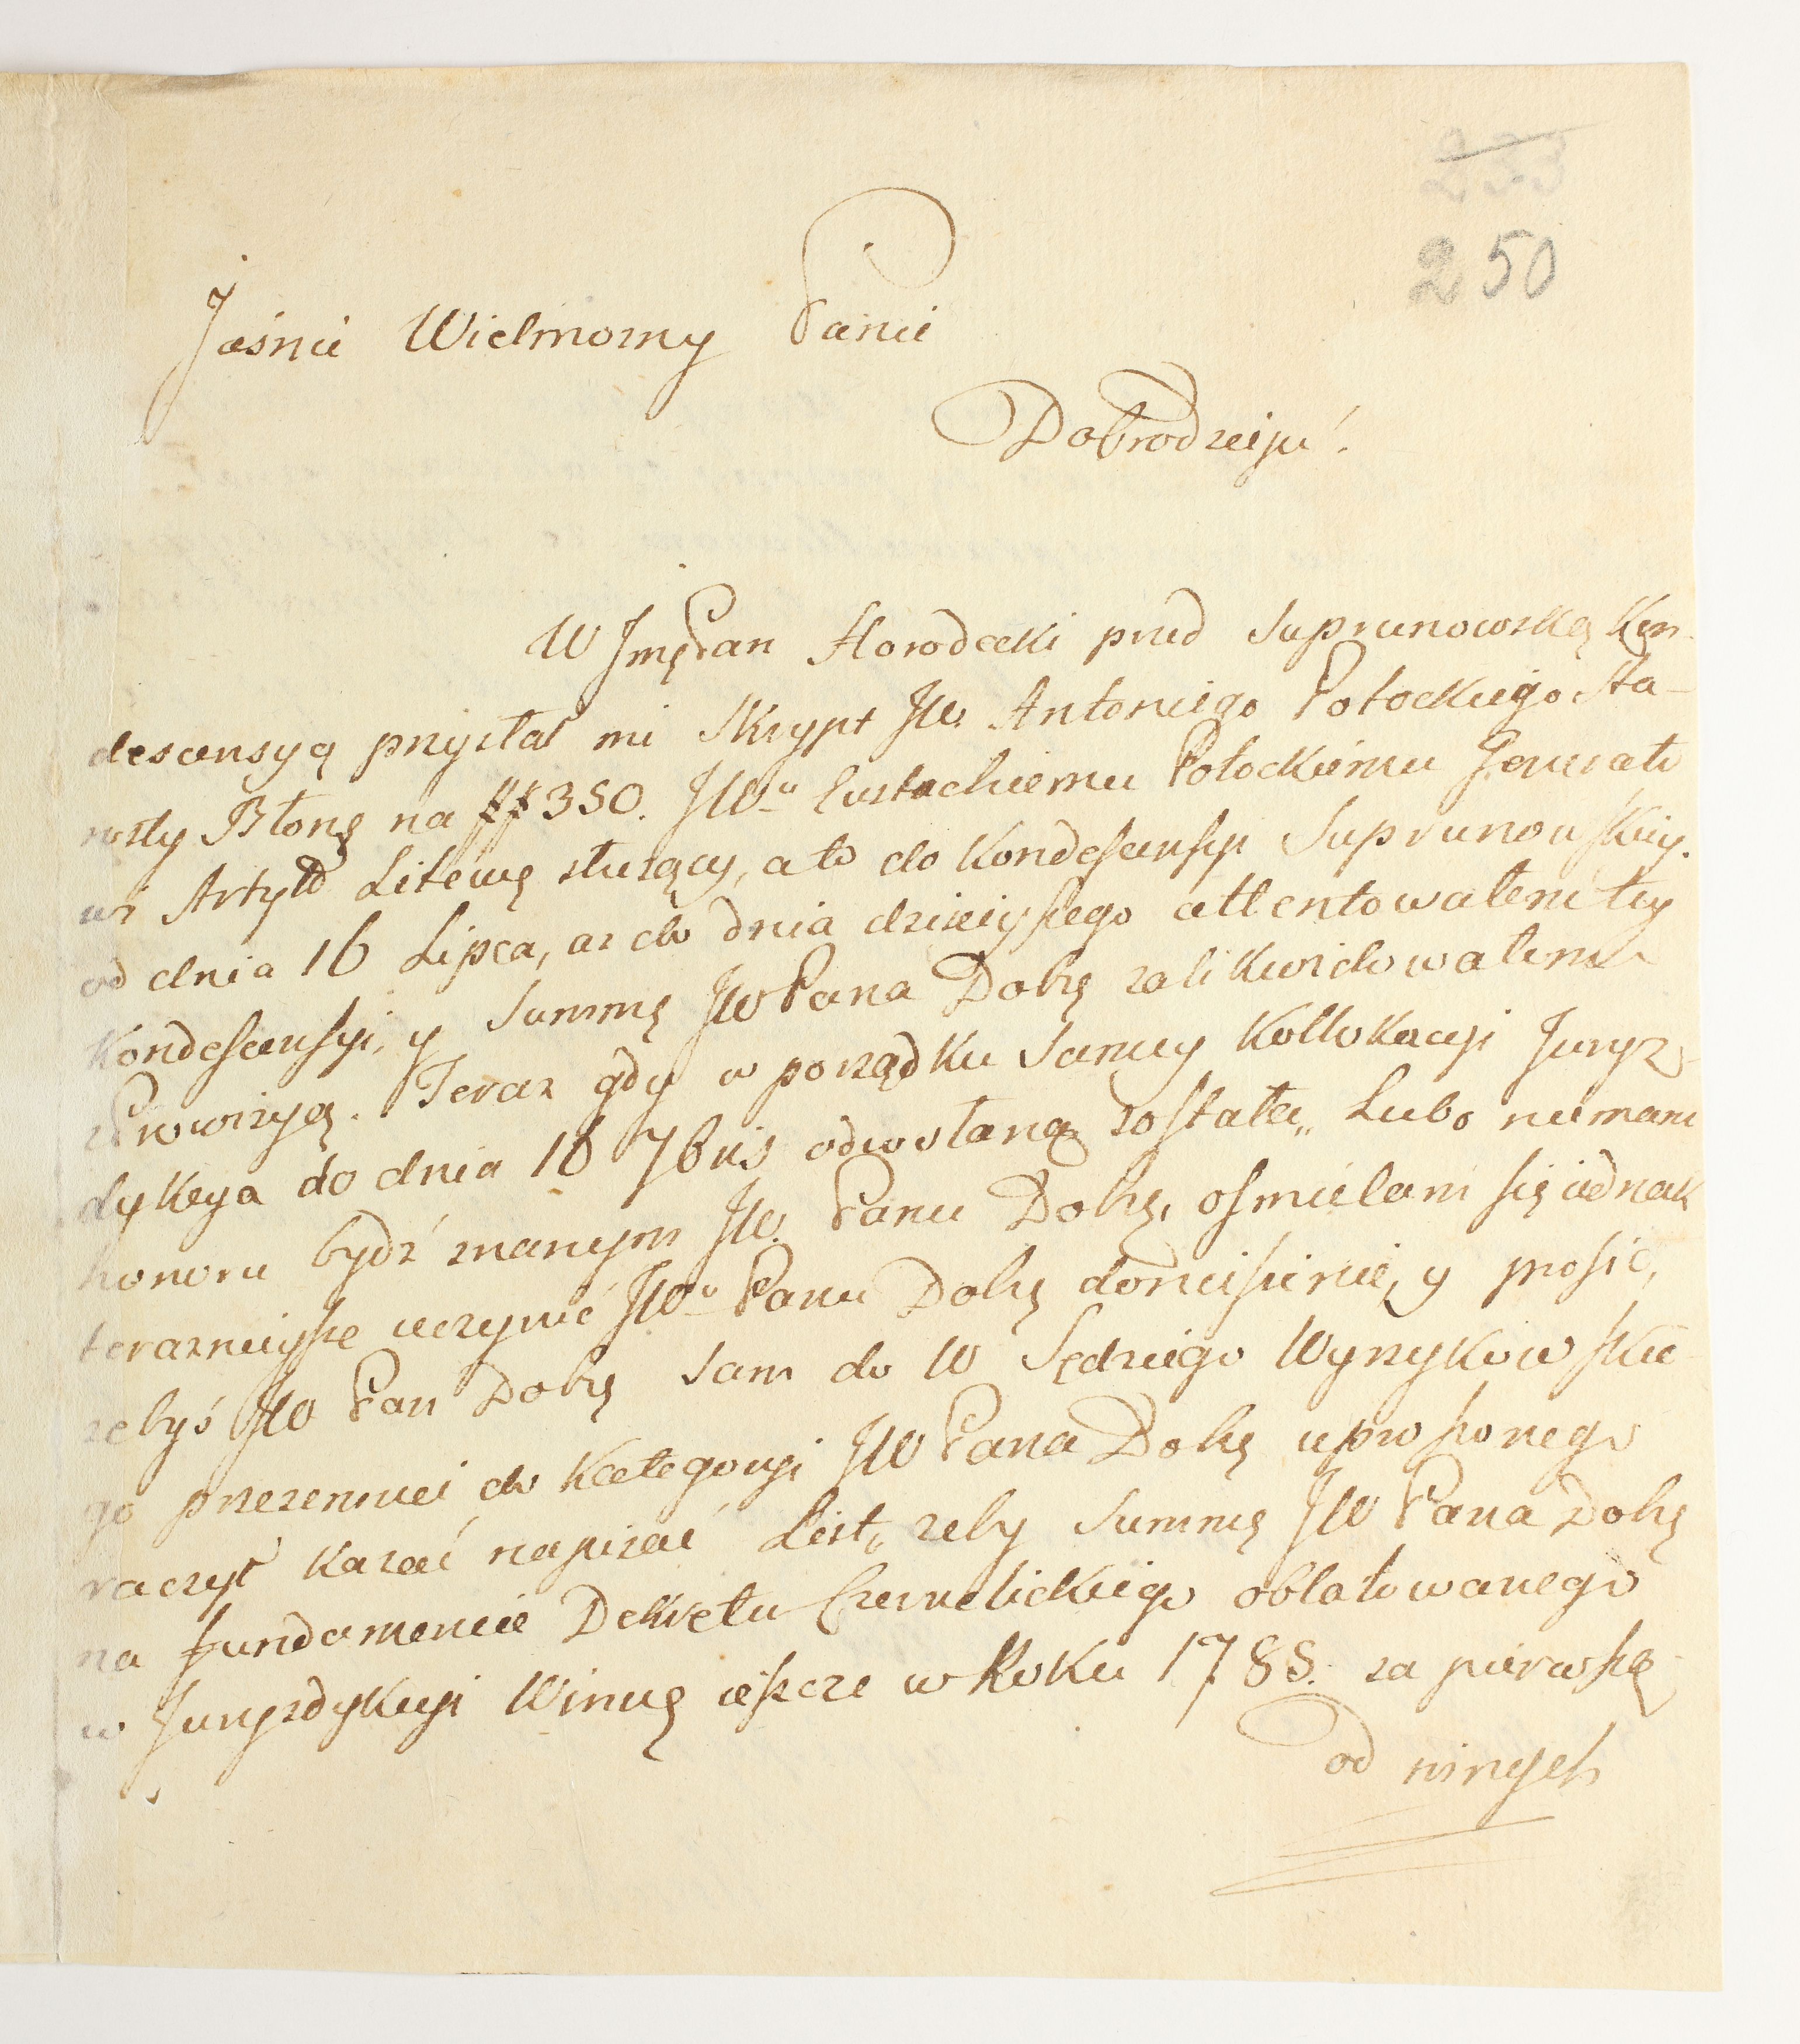 233
250
Jaśnie Wielmozny Panie
Dobrodzieju.
W Jmę Pan Horodecki przed Suprunowską Kon-
descensyą przysłał mi Skrypt JW. Antoniego Potockiego Sta-
rosty Błonę na ## 350. JWu Eustachiemu Potockiemu Generało
wi Artyll Litewę słuzący, a to do Kondescensyi Suprunowskiey.
od dnia 16 Lipca, az do dnia dzisieyszego attentowałem tey
Kondescensyi, y Summę JW Pana Dobrę zalikwidowałem
z Prowizyą. Teraz gdy w porządku samey Kollokacyi Juryz-
dykcya do dnia 16 7bris odwołaną została„ Lubo nie mam
honoru bydź znanym JW. Panu Dobrę, osmielam się iednak
teraznieysze uczynić JWu Panu Dobrę doniesienie, y prosić,
zebyś JW Pan Dobrę sam do W Sędziego Wyrzykowskie
go przezemnie do Kategoryi JW Pana Dobrę uproszonego
raczył kazać napisać List, zeby Summę JW Pana Dobrę
na Fundamencie Dekretu Czernelickiego oblatowanego
w Juryzdykcyi Winnę ieszcze w Roku 1788. za pierwszą
od innych